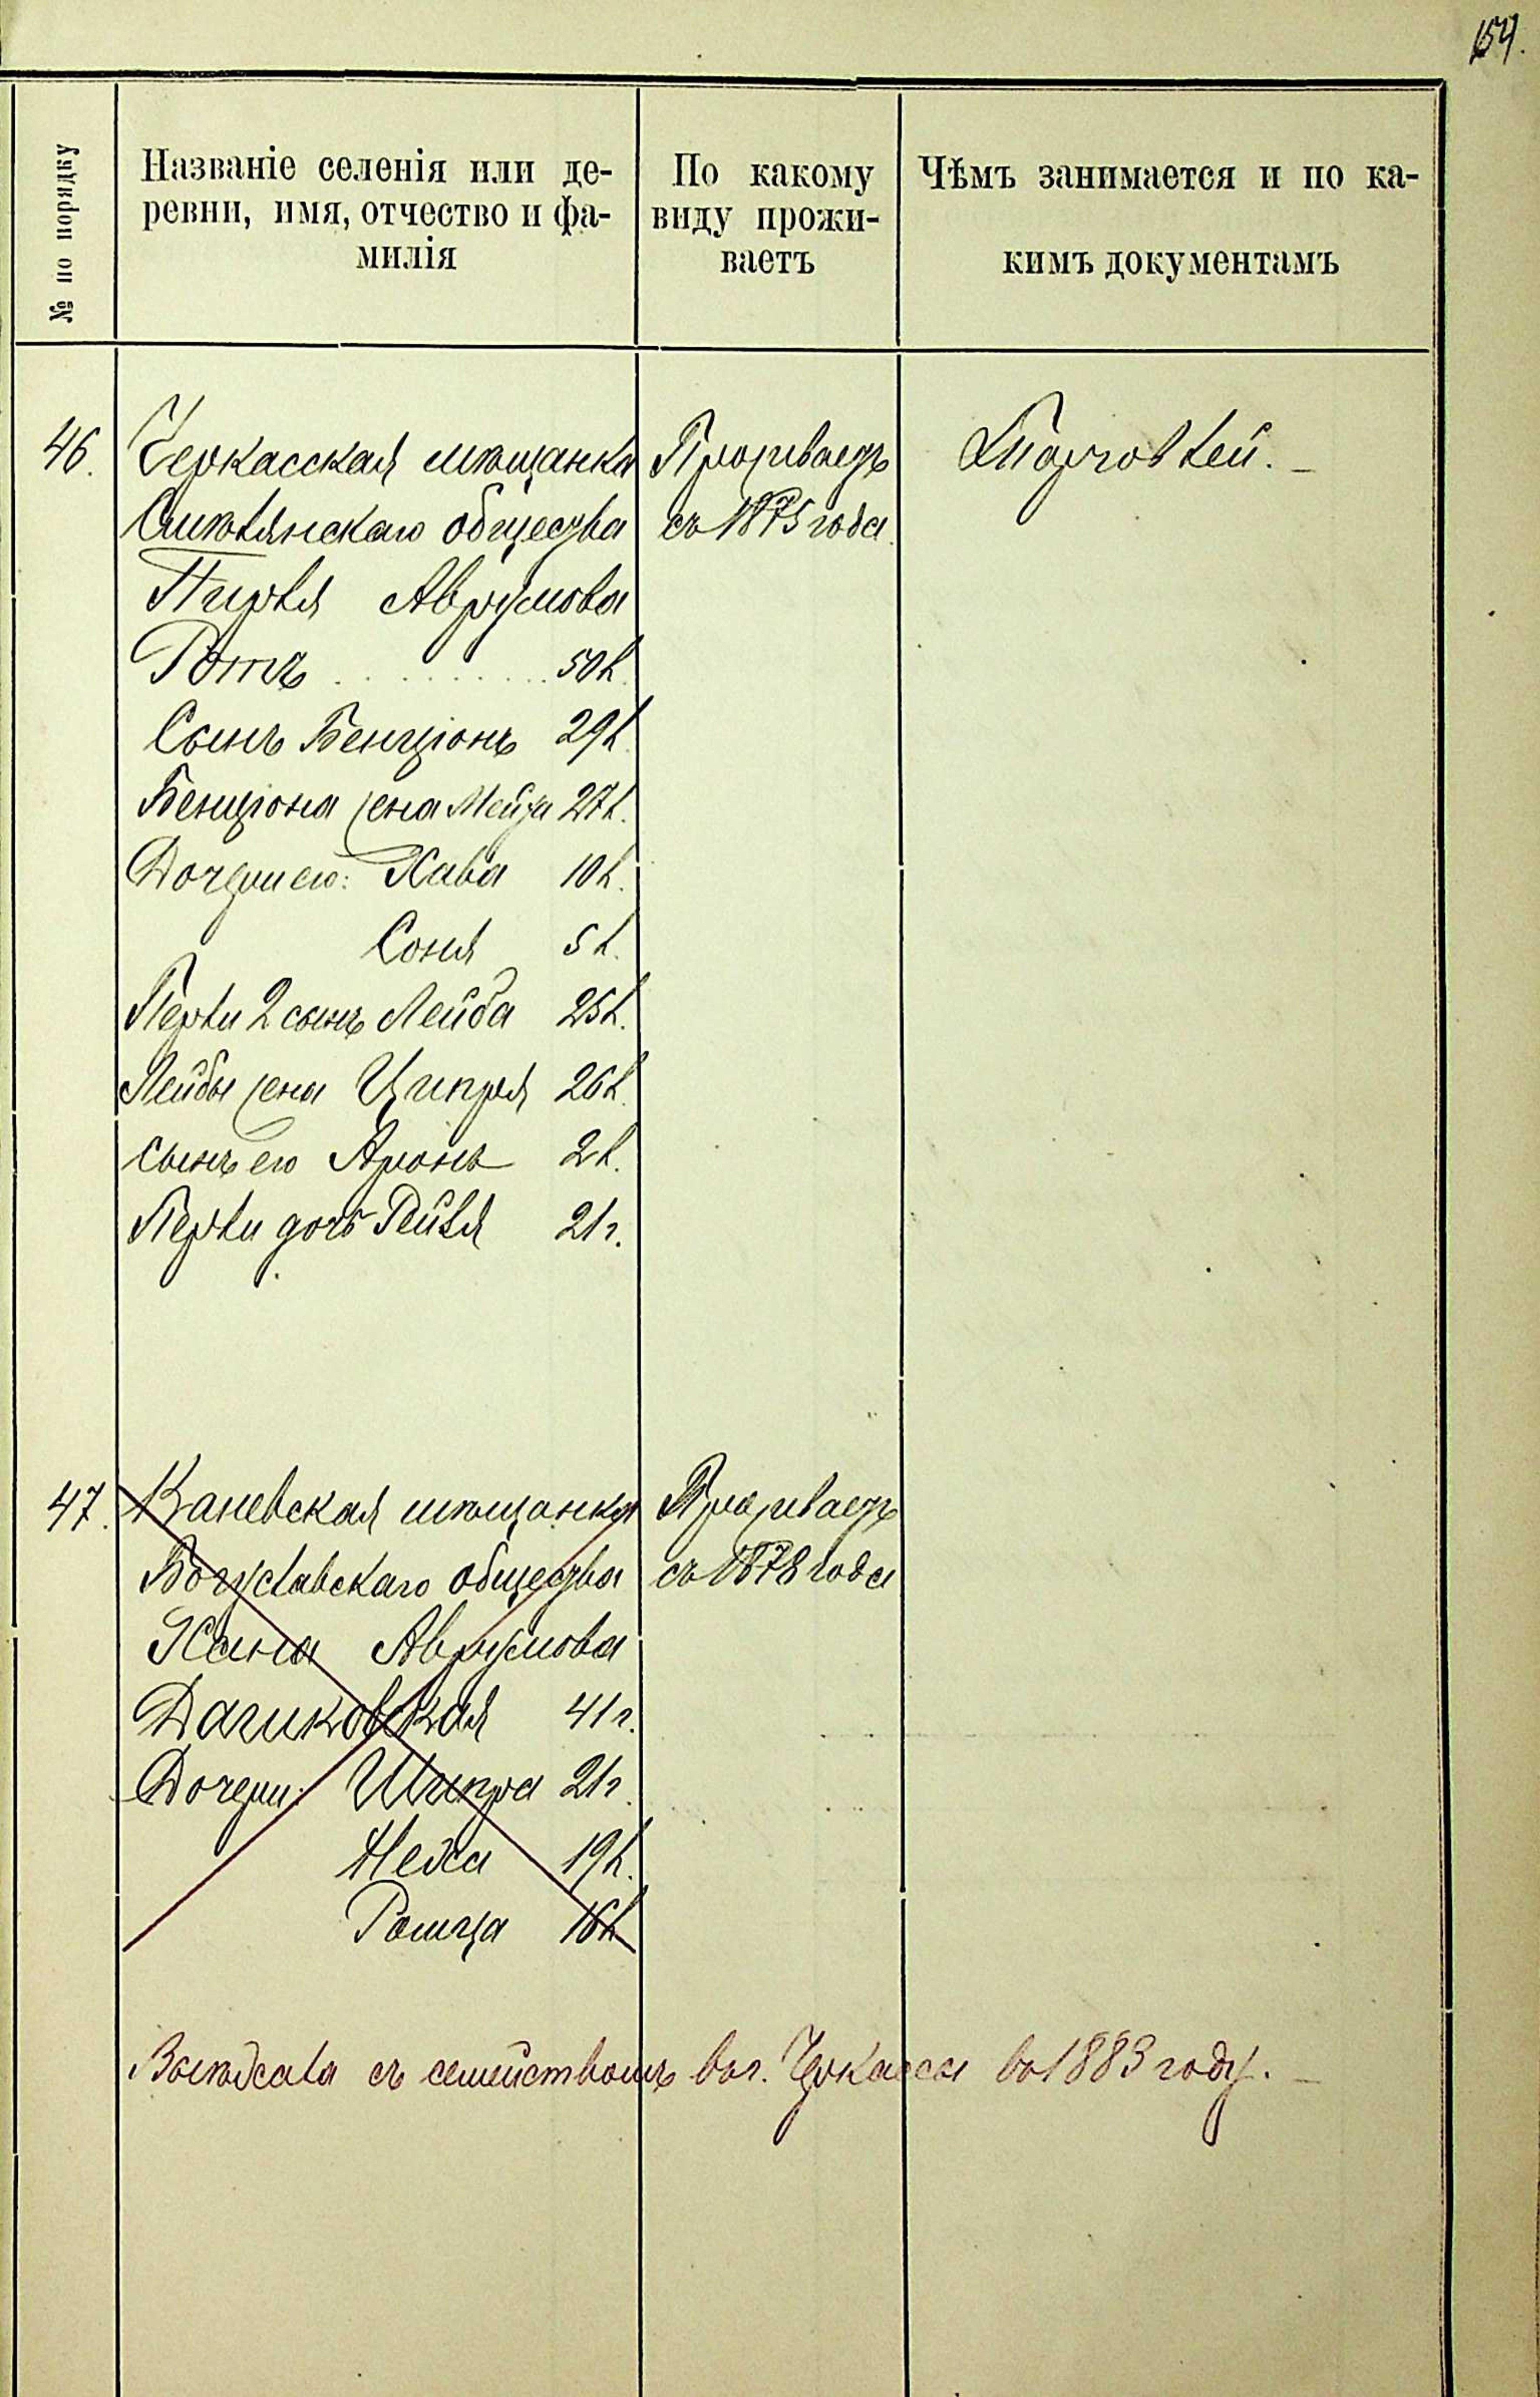 154.
№ по порядку
Названіе селенія или де-
ревни, имя, отчество и фа-
милія
По какому
виду прожи-
ваетъ
Чѣмъ занимается и по ка-
кимъ документамъ
46.
Черкасская мѣщанка
Смѣлянскаго общества
Пирля Аврумова
Ротъ . . . . . . . . . . 50 л.
Сынъ Бенціонъ 29 л.
Бенціона жена Мейта 27 л.
Дочери его: Хава 10 л.
Соня 5 л.
Перли 2 сынъ Лейба 25 л.
Лейбы жена Ципря 26 л.
сынъ его Аронъ 2 л.
Перли дочь Рейзя 21 г.
Проживаетъ
съ 1875 года.
Торговлей. —
47.
Каневская мѣщанка
Богуславскаго общества
Хана Аврумова
41 г.
Дочери: Шипра 21 г.
Неха 19 л.
16 л.
Проживаетъ
съ 1878 года
Выѣхала съ семействомъ въ г. Черкассы въ 1883 году. —